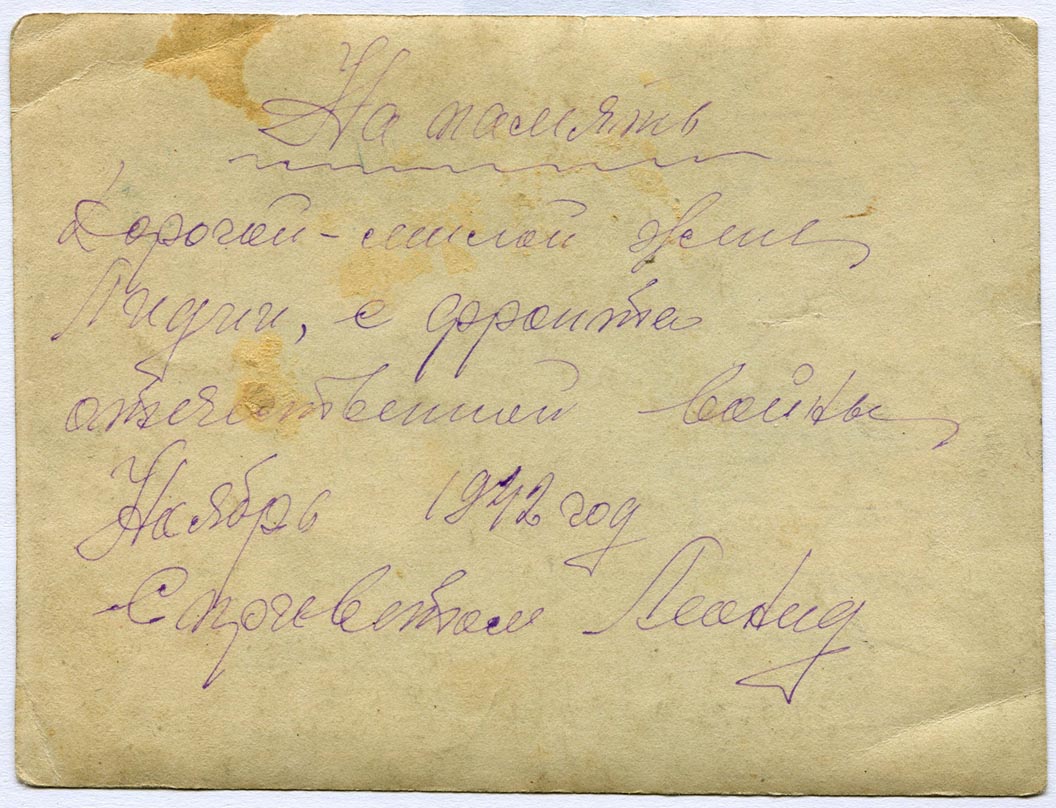 На память
Дорогой - милой жене
Лидии, с фронта
отечественной войны
Ноябрь 1942 год
С приветом Леонид